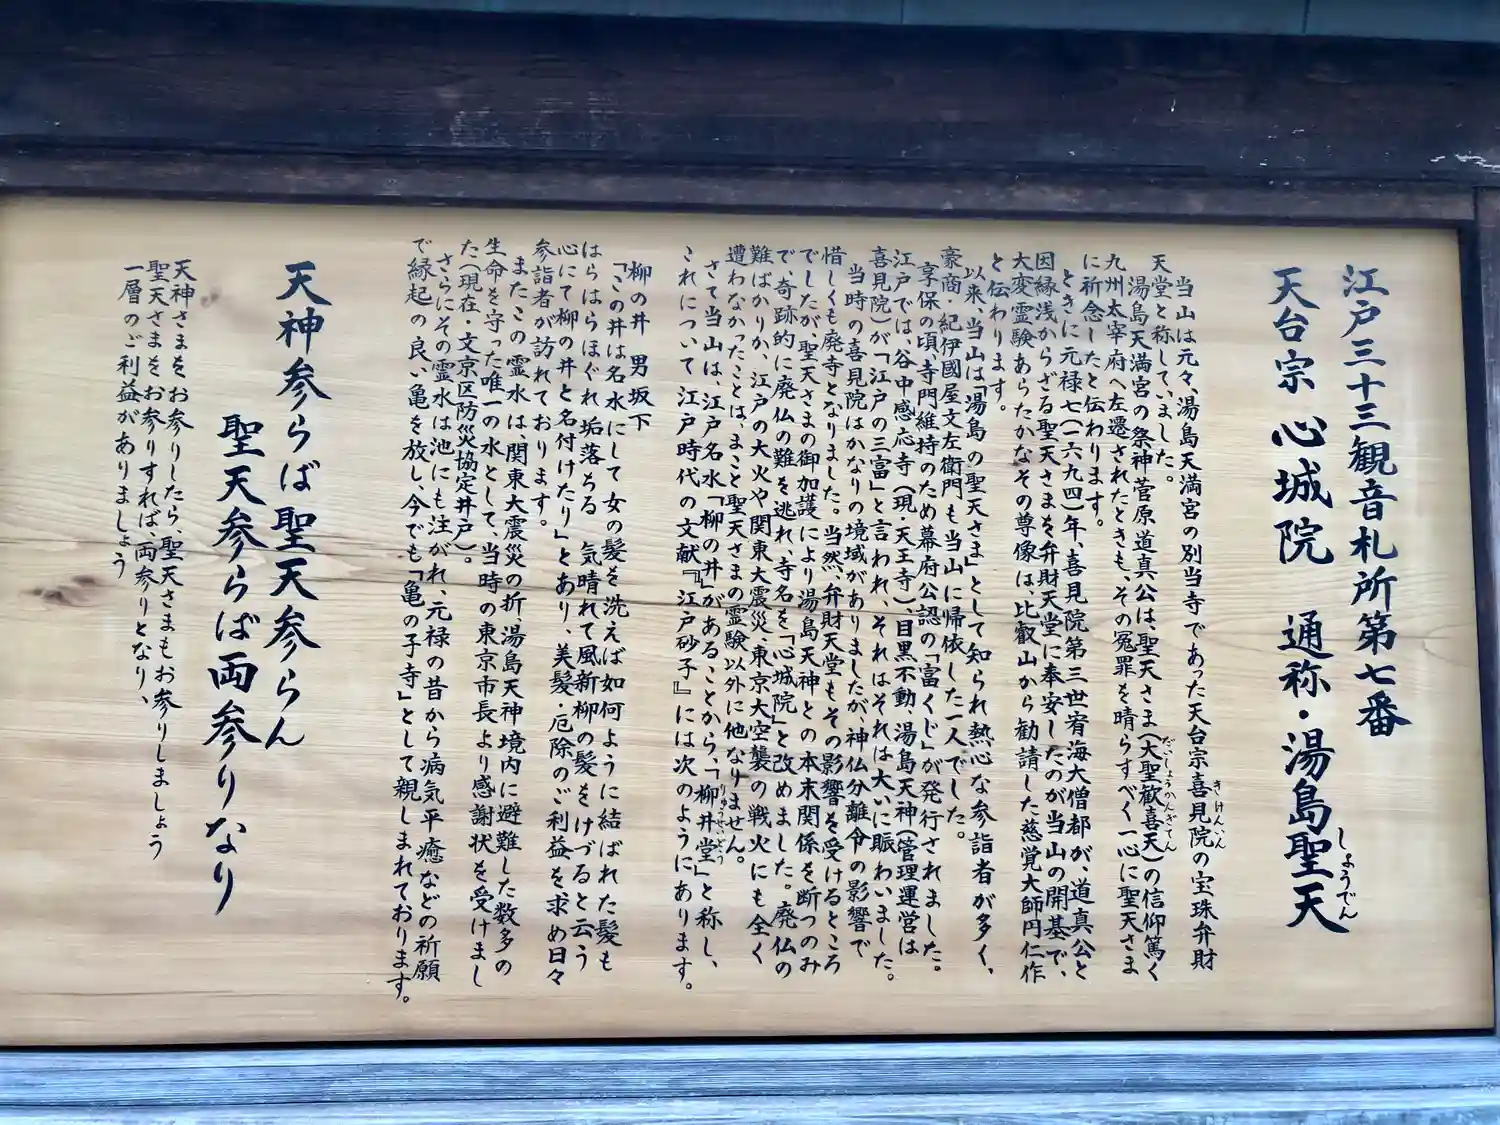 江戸三十三観音札所第七番
天台宗 心城院 通称・湯島聖天
しょうでん
当山は元々、湯島天満宮の別当寺であった天台宗喜見院の宝珠弁財
きけんいん
天堂と称していました。
湯島天満宮の祭神菅原道真公は、聖天さま(大聖歓喜天)の信仰篤く
だいしょうかんぎてん
九州太宰府へ左遷されたときも、その冤罪を晴らすべく一心に聖天さま
に祈念したと伝わります。
ときに元禄七(一六九四)年、喜見院第三世宥海大僧都が、道真公と
因縁浅からざる聖天さまを弁財天堂に奉安したのが当山の開基で、
大変霊験あらたかなその尊像は、比叡山から勧請した慈覚大師円仁作
と伝わります。
以来、当山は「湯島の聖天さま」として知られ熱心な参詣者が多く、
豪商・紀伊國屋文左衛門も当山に帰依した一人でした。
享保の頃、寺門維持のため幕府公認の「富くじ」が発行されました。
江戸では、谷中感応寺(現・天王寺)、目黒不動、湯島天神(管理運営は
喜見院)が「江戸の三富」と言われ、それはそれは大いに賑わいました。
当時の喜見院はかなりの境域がありましたが、神仏分離令の影響で
惜しくも廃寺となりました。当然、弁財天堂もその影響を受けるところ
でしたが聖天さまの御加護により湯島天神との本末関係を断つのみ
で、奇跡的に廃仏の難を逃れ、寺名を「心城院」と改めました。廃仏の
難ばかりか、江戸の大火や関東大震災、東京大空襲の戦火にも全く
遭わなかったことは、まこと聖天さまの霊験以外に他なりません。
さて当山は、江戸名水「柳の井」があることから、「柳井堂」と称し、
りゅうせいどう
これについて江戸時代の文献『江戸砂子』には次のようにあります。
柳の井 男坂下
「この井は名水にして女の髪を洗えば如何ように結ばれた髪も
はらはらほぐれ垢落ちる 気晴れて風新柳の髪をけづると云う
心にて柳の井と名付けたり」とあり、美髪・厄除のご利益を求め日々
参詣者が訪れております。
またこの霊水は、関東大震災の折、湯島天神境内に避難した数多の
生命を守った唯一の水として、当時の東京市長より感謝状を受けまし
た(現在・文京区防災協定井戸)。
さらにその霊水は池にも注がれ、元禄の昔から病気平癒などの祈願
で縁起の良い亀を放し、今でも「亀の子寺」として親しまれております。
天神参らば聖天参らん
聖天参らば両参りなり
天神さまをお参りしたら、聖天さまもお参りしましょう
聖天さまをお参りすれば、両参りとなり、
一層のご利益がありましょう